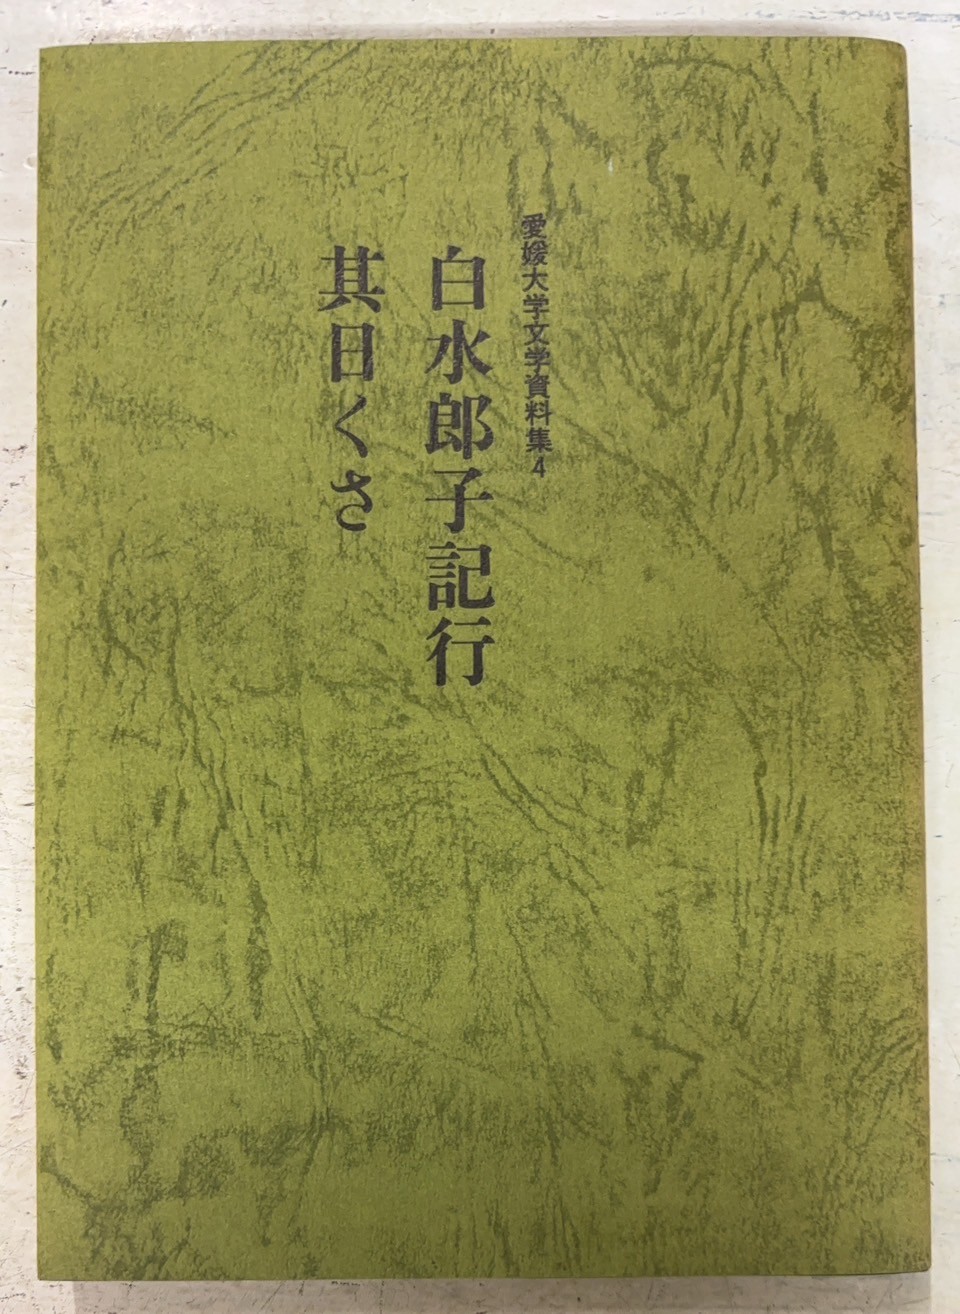 愛媛大学文学資料集4
白水郎子記行
其日くさ